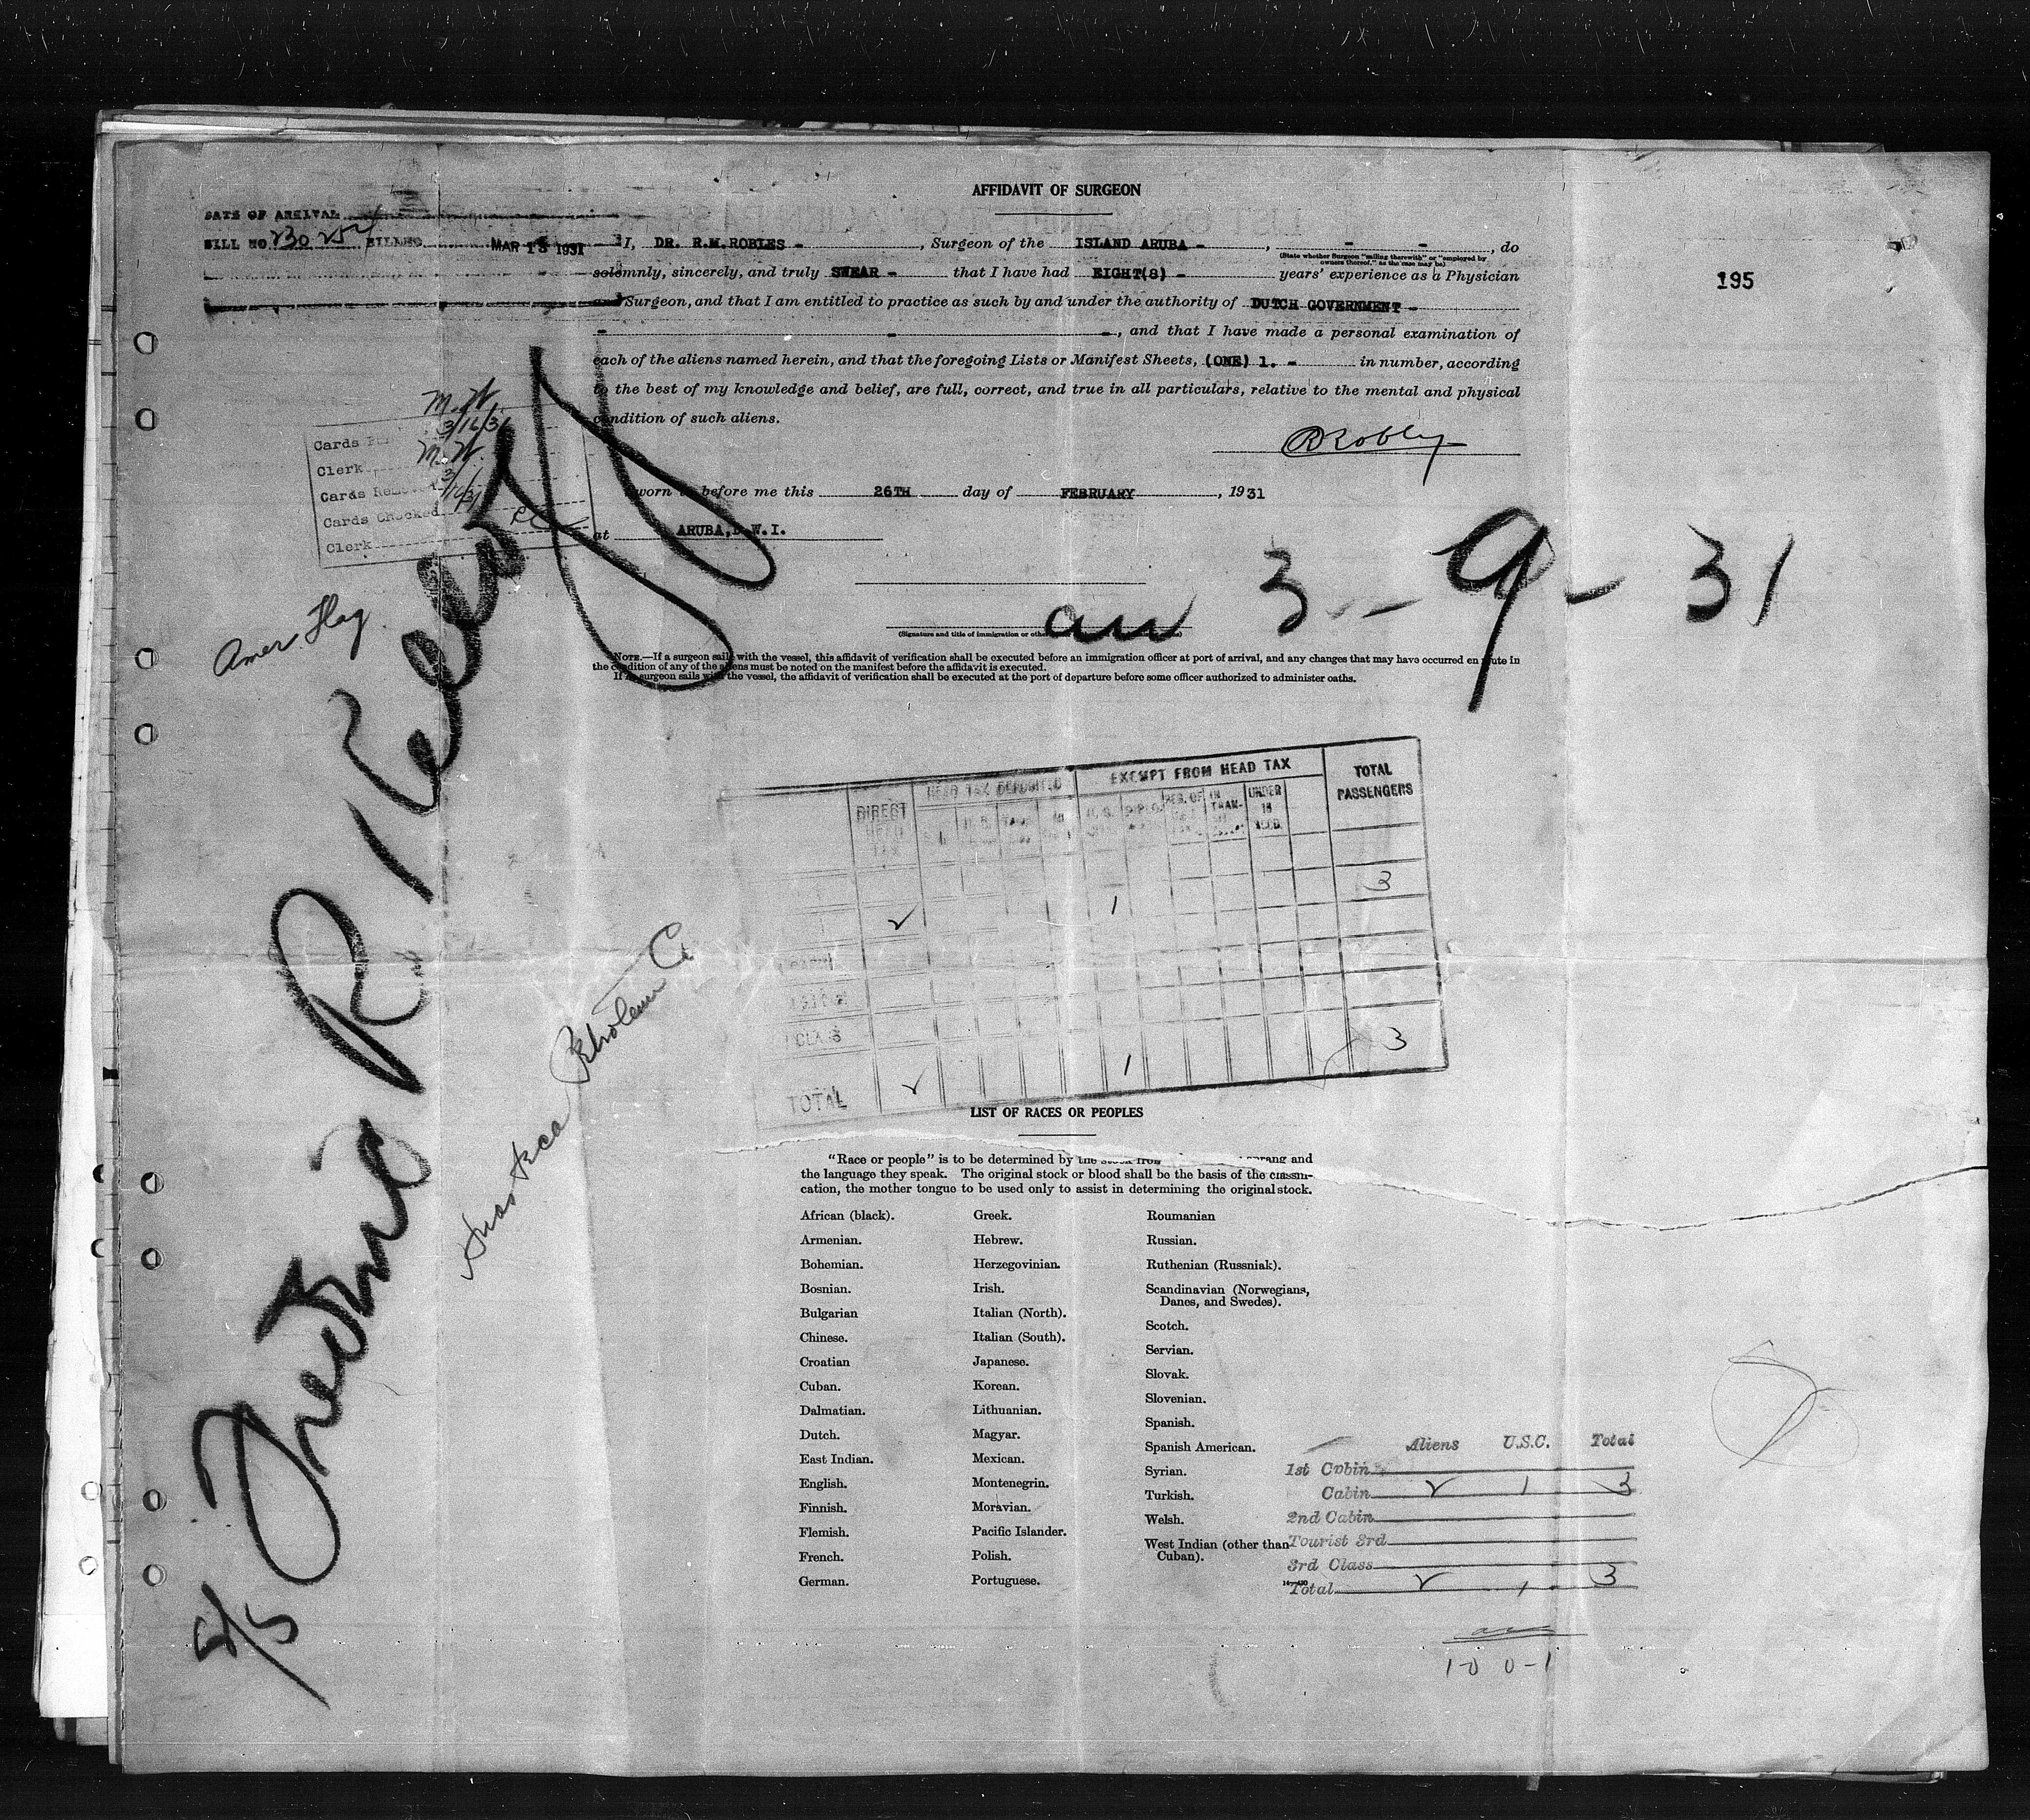 AFFIDAVIT OF SURGEON
DATE OF ARRIVAL
BILL NO. 230 BILLED MAR 13 1931
195
I, DR. R.M. ROBLES - , Surgeon of the ISLAND ARUBA - , - - , do
(State whether Surgeon "sailing therewith" or "employed by owners thereof," as the case may be)
solemnly, sincerely, and truly SWEAR - that I have had EIGHT(8) - years' experience as a Physician
and Surgeon, and that I am entitled to practice as such by and under the authority of DUTCH GOVERNMENT -
- - -, and that I have made a personal examination of
each of the aliens named herein, and that the foregoing Lists or Manifest Sheets, (ONE) 1. - in number, according
to the best of my knowledge and belief, are full, correct, and true in all particulars, relative to the mental and physical
condition of such aliens.
M. W.
Cards 3/16/31
Clerk M. W.
Cards Removed 3/16/31
Cards Checked
Clerk
Sworn to before me this 26TH day of FEBRUARY , 1931
at ARUBA, D.W.I.
Amer. Flag
arr 3 - 9 - 31
(Signature and title of immigration or
NOTE.—If a surgeon sails with the vessel, this affidavit of verification shall be executed before an immigration officer at port of arrival, and any changes that may have occurred en route in
the condition of any of the aliens must be noted on the manifest before the affidavit is executed.
If no surgeon sails with the vessel, the affidavit of verification shall be executed at the port of departure before some officer authorized to administer oaths.
S/S Fredric R Kellogg
Huasteca Petroleum Co
DIRECT HEAD TAX
HEAD TAX DEPOSITED
EXEMPT FROM HEAD TAX
TOTAL PASSENGERS
U. S. DIPLO. RES. OF IN TRAN- UNDER 16
2 1 3
CLASS
TOTAL 2 1 3
LIST OF RACES OR PEOPLES
"Race or people" is to be determined by the stock from sprang and
the language they speak. The original stock or blood shall be the basis of the classifi-
cation, the mother tongue to be used only to assist in determining the original stock.
African (black).
Armenian.
Bohemian.
Bosnian.
Bulgarian
Chinese.
Croatian
Cuban.
Dalmatian.
Dutch.
East Indian.
English.
Finnish.
Flemish.
French.
German.
Greek.
Hebrew.
Herzegovinian.
Irish.
Italian (North).
Italian (South).
Japanese.
Korean.
Lithuanian.
Magyar.
Mexican.
Montenegrin.
Moravian.
Pacific Islander.
Polish.
Portuguese.
Roumanian
Russian.
Ruthenian (Russniak).
Scandinavian (Norwegians,
Danes, and Swedes).
Scotch.
Servian.
Slovak.
Slovenian.
Spanish.
Spanish American.
Syrian.
Turkish.
Welsh.
West Indian (other than
Cuban).
Aliens U.S.C. Total
1st Cabin
Cabin 2 1 3
2nd Cabin
Tourist 3rd
3rd Class
Total 2 1 3
1-0 0-1